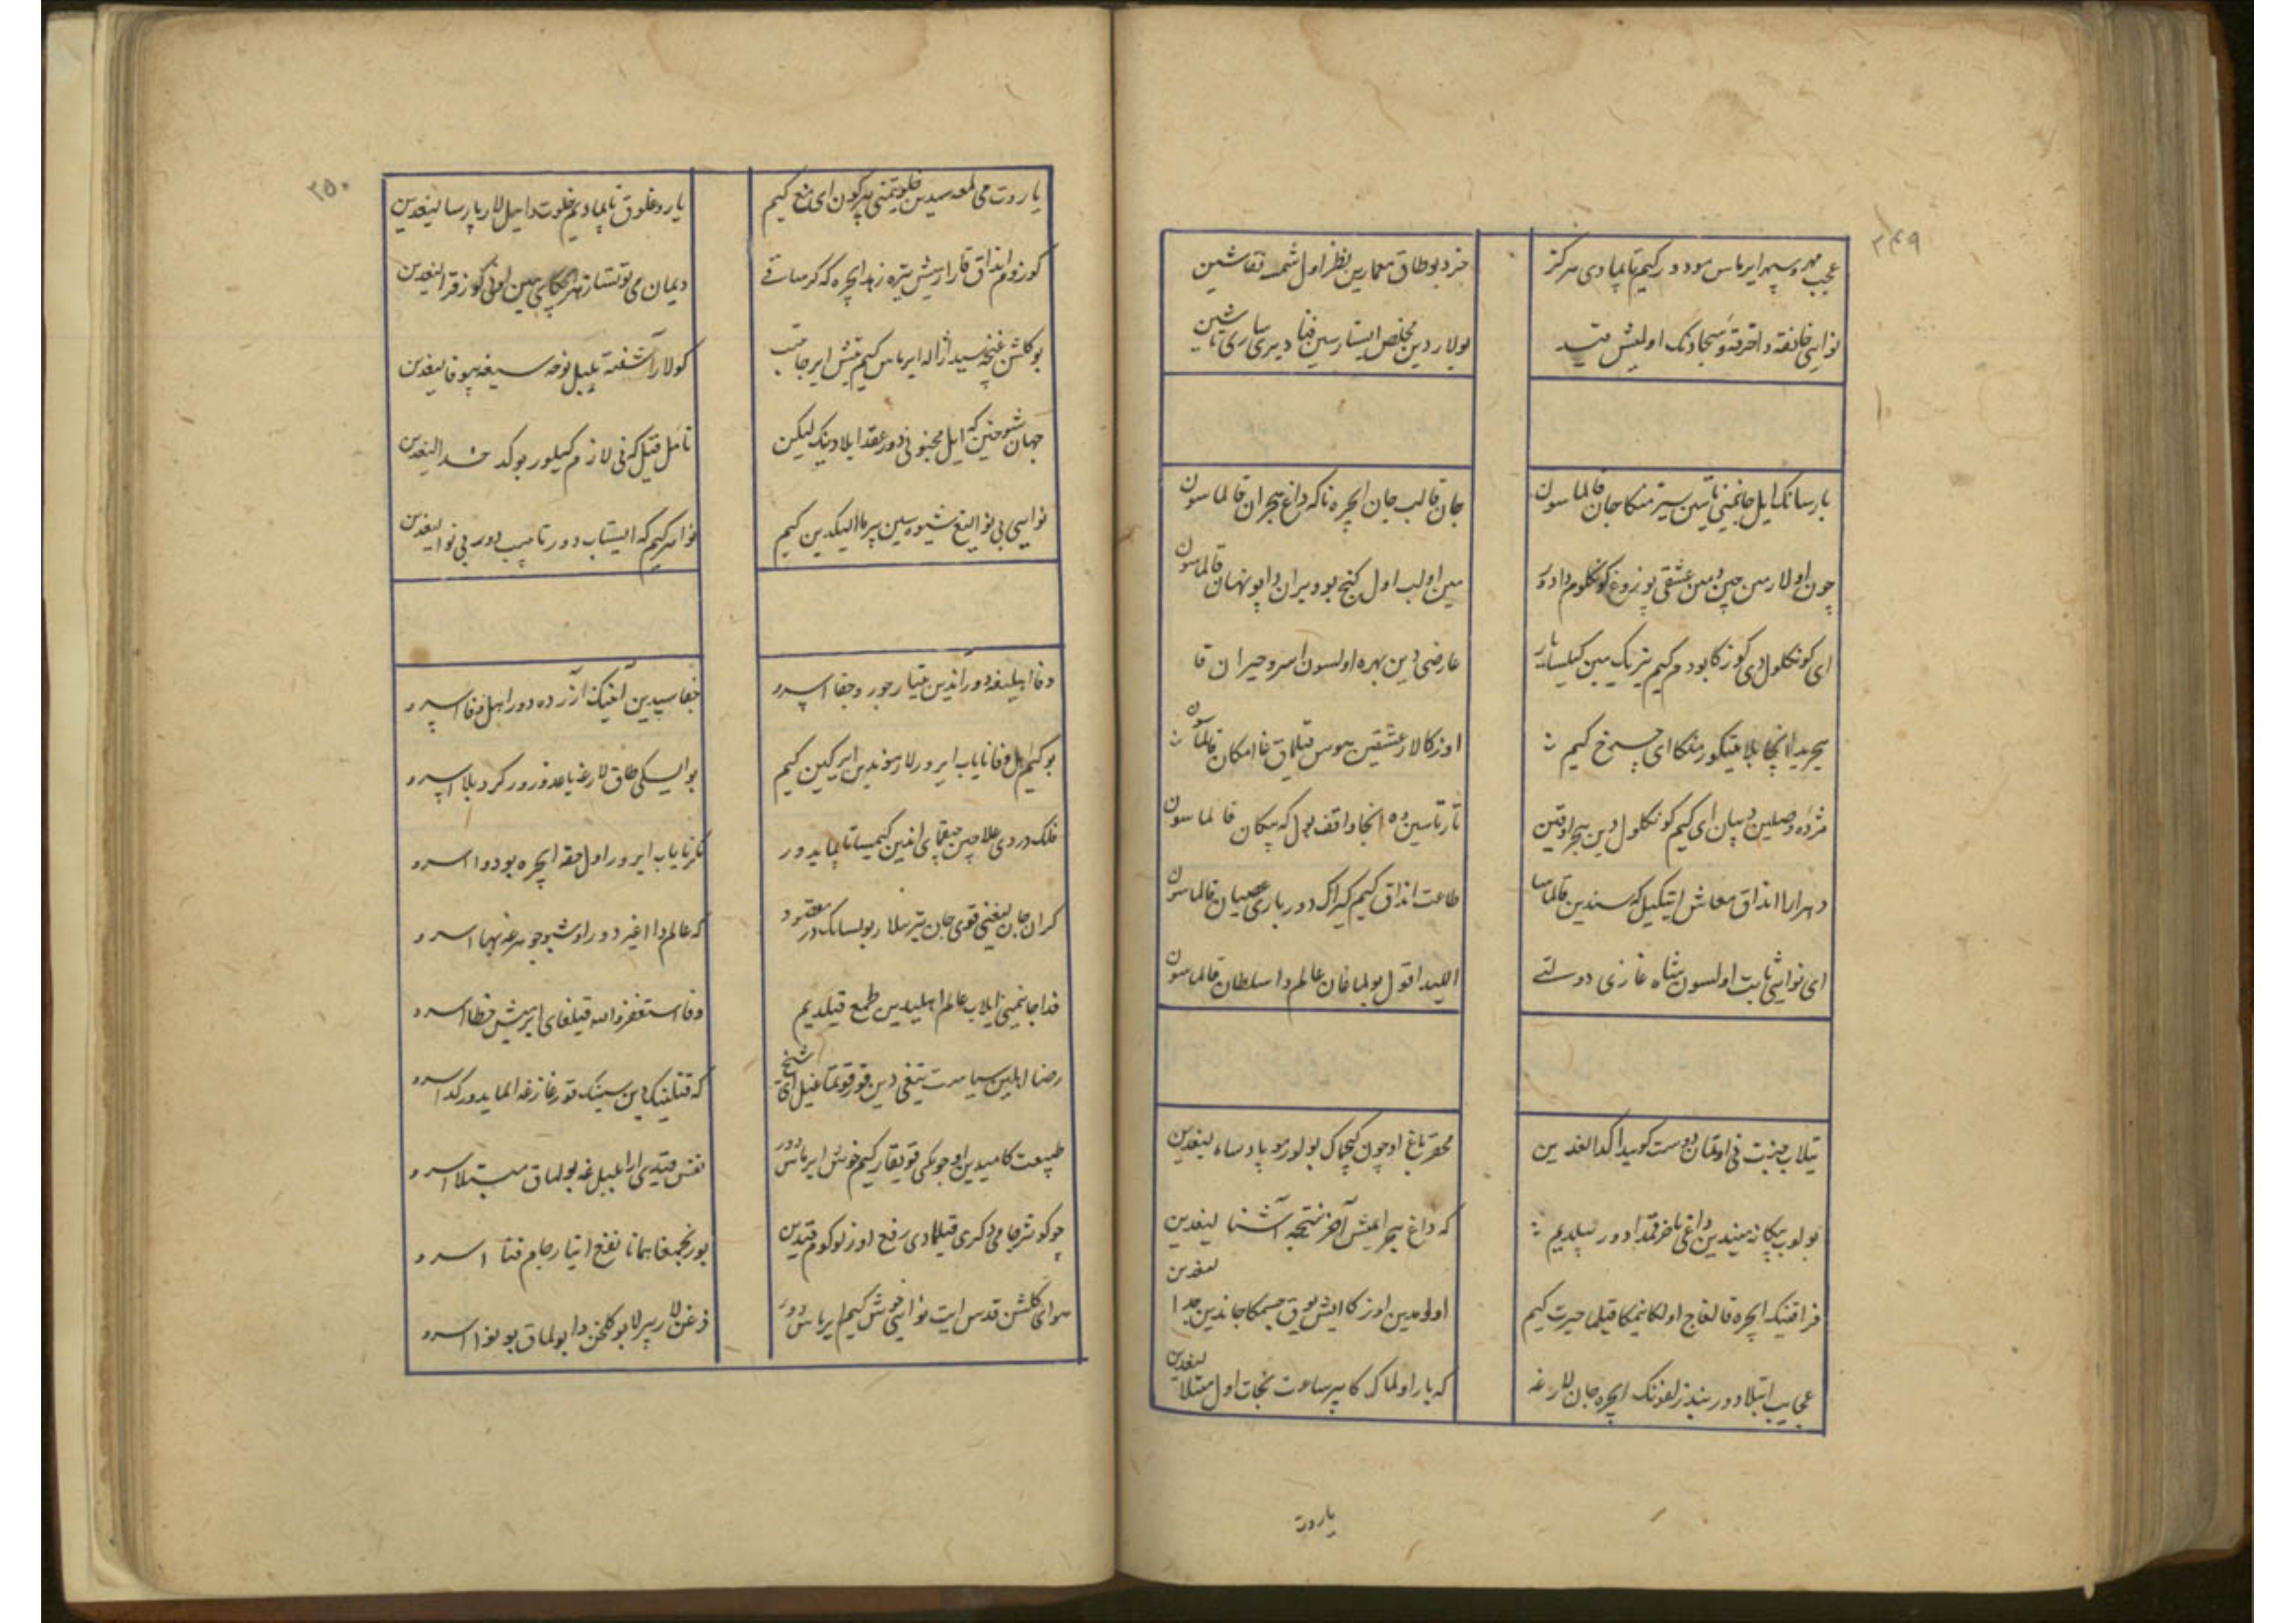 ۳۴۹
عجب مهره سپهر ایرماس مو دور کیم تاپمادی هرکز
خرد بو طاق معمارین نظر اول شمسه نقاشین
نوایی خانقه دا خرقه و سجاده نک اولمیش قید
بولاردین مخلص ایستارسین فنا دیری ساری تاشین
بارسانک ایل جانیغه تاپین سیز منکا جان قالماسون
جان قالب جان ایچره تا که داغ هجران قالماسون
چون اولارمن چین دیمن عشقی بوزوغ کونکلوم دا دور
مین اولب اول کنج بو ویران دا پنهان قالماسون
ای کونکلول دی کوزکا بودم کیم تیریک مین کیلسا یار
عارضی دین بهره اولسون اسرو حیران قا
هجریدا انجا بلا یتکور منکا ای چرخ کیم
اوزکالار عشقین هوس قیلماق غا امکان قالماسون
مژده وصلین دیبان ای کیم کونکلول دین هجر اوقین
تارتاسین ده انجا واقف بول که پیکان قالماسون
دهر ارا انداق معاش ایتکیل که سندین قالماسا
طاعت انداق کیم کیراک دور باری عصیان قالماسون
ای نوایی ثابت اولسون شاه غازی دولتی
اللیدا قول بولماغان عالم دا سلطان قالماسون
تیلاب جنت نی اوتمان دوست کوییدا کدالغدین
محقر باغ اوچون کیچماک بولورمو پادشاه لیغدین
بولوب بیکانه میندین داغی ناخر قمدا دور بیلدیم
که داغ هجر ایمیش آخر نتیجه آشنا لیغدین
فراقینک ایچره قالغاچ اولکانیمکا قیلما حیرت کیم
اولومدین اوزکا ایش یوق جسمکا جاندین جدا لیغدین
عجایب ابتلا دور بند زلفونک ایچره جان لارغه
که یار اولماک کا هر ساعت نجات اول مبتلا لیغدین
یاروت
۲۵۰
یاروت می لمعه سیدین خلوتیمنی هر کون ای مغ کیم
یاروغلوق تاپمادیم خلوت دا ایل لار پارسا لیغدین
کوزوم انداق قارارمیش تیره زهد ایچره که کر ساقی
دیمان می توتسا
بو کلشن غنچه سیدا ژاله ایرماس کیم تیش ایرجاتیب
کولار آشفته بلبل نوحه سیغه بیوفا لیغدین
جهان شوخین که ایل محبوبی دور عقد ایلادینک لیکن
تأمل قیل که نی لازم کیلور بو کدخدا لیغدین
نوایی بی نوالیغ شیوه سین پیر ما الیکدین کیم
نوا هر کیم که ایستاب دور تاپیب دور بی نوا لیغدین
وفا اهلیغه دوراندین یتار جور و جفا اسرو
جفاسیدین آنینک آزرده دور اهل وفا اسرو
بو کیم اهل وفا نایاب ایرورلار موندین ایرکین کیم
بو ایسکی طاق لارغه یاغدورور کردبلا اسرو
فلک دردی علاجین حقه ای اندین کیمیسا تاپمایدور
مکر نایاب ایرور اول حقه ایچره بو دوا اسرو
کران جان لیغنی قوی جان بیرسالار بولسانک دُر مقصود
که عالم دا اغیر دور اوشبو جوهرغه بها اسرو
فدا جانیمنی ایلاب عالم اهلیدین طمع قیلدیم
وفا استغفرالله قیلغای ایرمیش خطا اسرو
رضا اهلین سیاست تیغی دین قورقوتماغیل ای شیخ
که قتلینک دین سینینک قورغازغه المایدور کدا اسرو
طبیعت کامیدین اوجوکی قویقار کیم خوش ایرماس دور
نفس قیدی ارا بلبل غه بولماق مبتلا اسرو
چو کوثر جامی دکری قیلمادی رفع اوزلوکوم قیدین
بو رنجیمغا همانا نفع ایتار جام فنا اسرو
هوای کلشن قدس ایت نوایی خوش کیم ایرماس دور
زغن لار بیرلا بو کلخن دا بولماق بو نوا اسرو